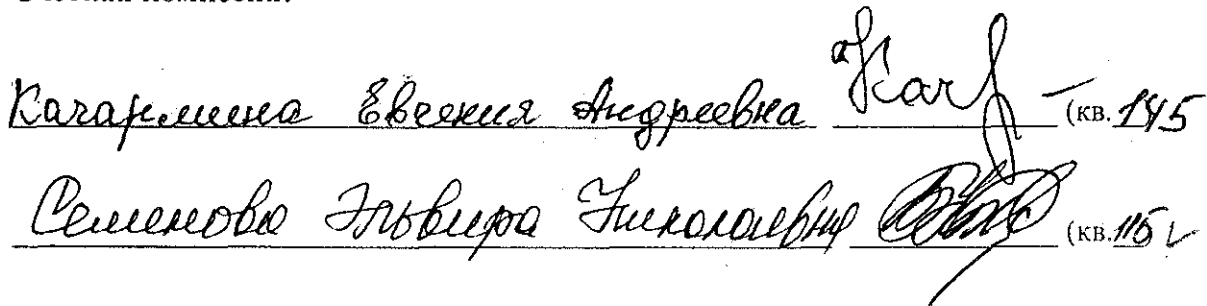 Евгения Андреевна (кв. 145
Семенова Эльвира Николаевна (кв. 115